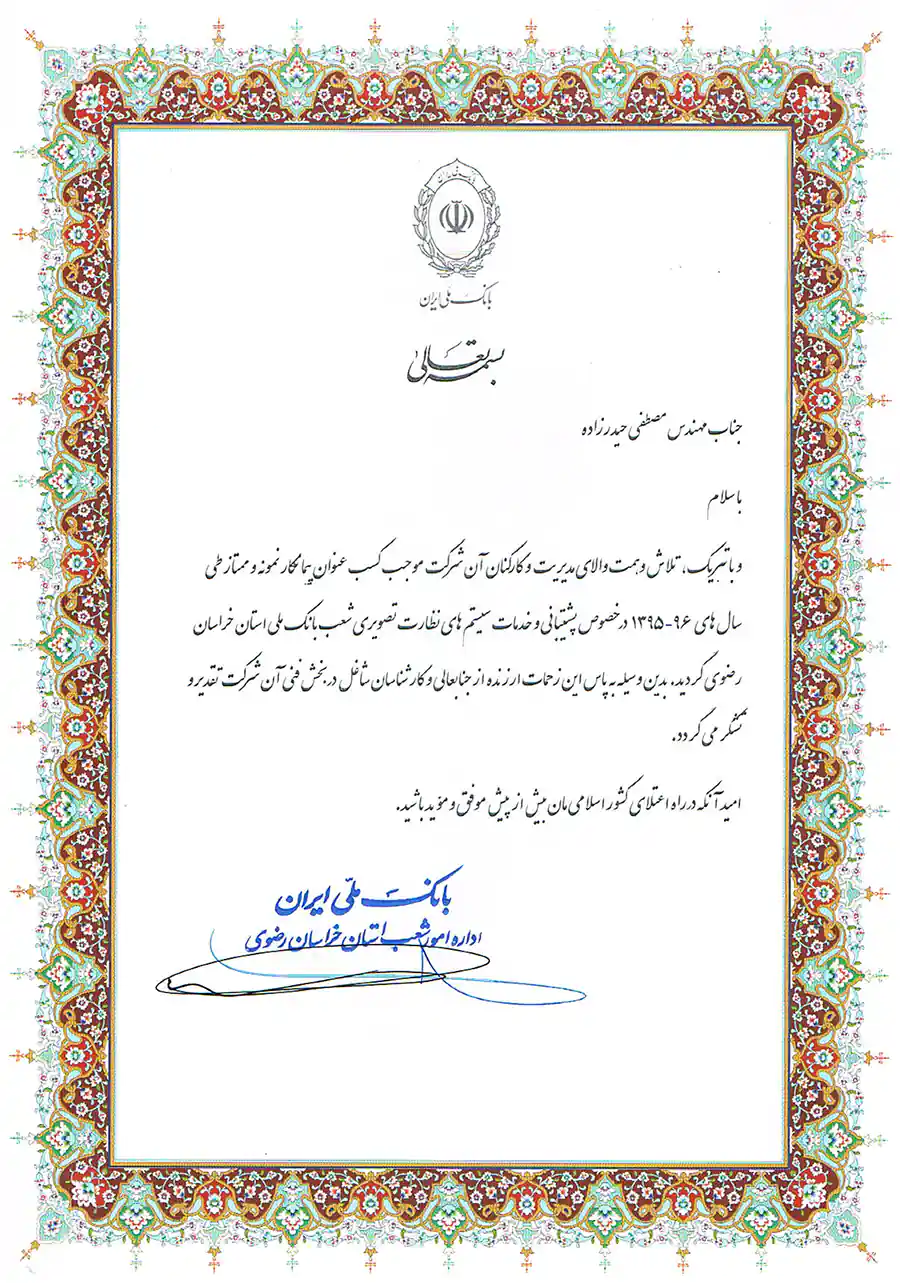 بانک ملی ایران
بسمه تعالی
جناب مهندس مصطفی حیدرزاده
باسلام
و با تبریک، تلاش و همت والای مدیریت و کارکنان آن شرکت موجب کسب عنوان پیمانکار نمونه و ممتاز طی
سال های ۹۶-۱۳۹۵ در خصوص پشتیبانی و خدمات سیستم های نظارت تصویری شعب بانک ملی استان خراسان
رضوی گردید. بدین وسیله به پاس این زحمات ارزنده از جنابعالی و کارشناسان شاغل در بخش فنی آن شرکت تقدیر و
تشکر می گردد.
امید آنکه در راه اعتلای کشور اسلامی مان بیش از پیش موفق و مؤید باشید.
بانک ملّی ایران
اداره امور شعب استان خراسان رضوی